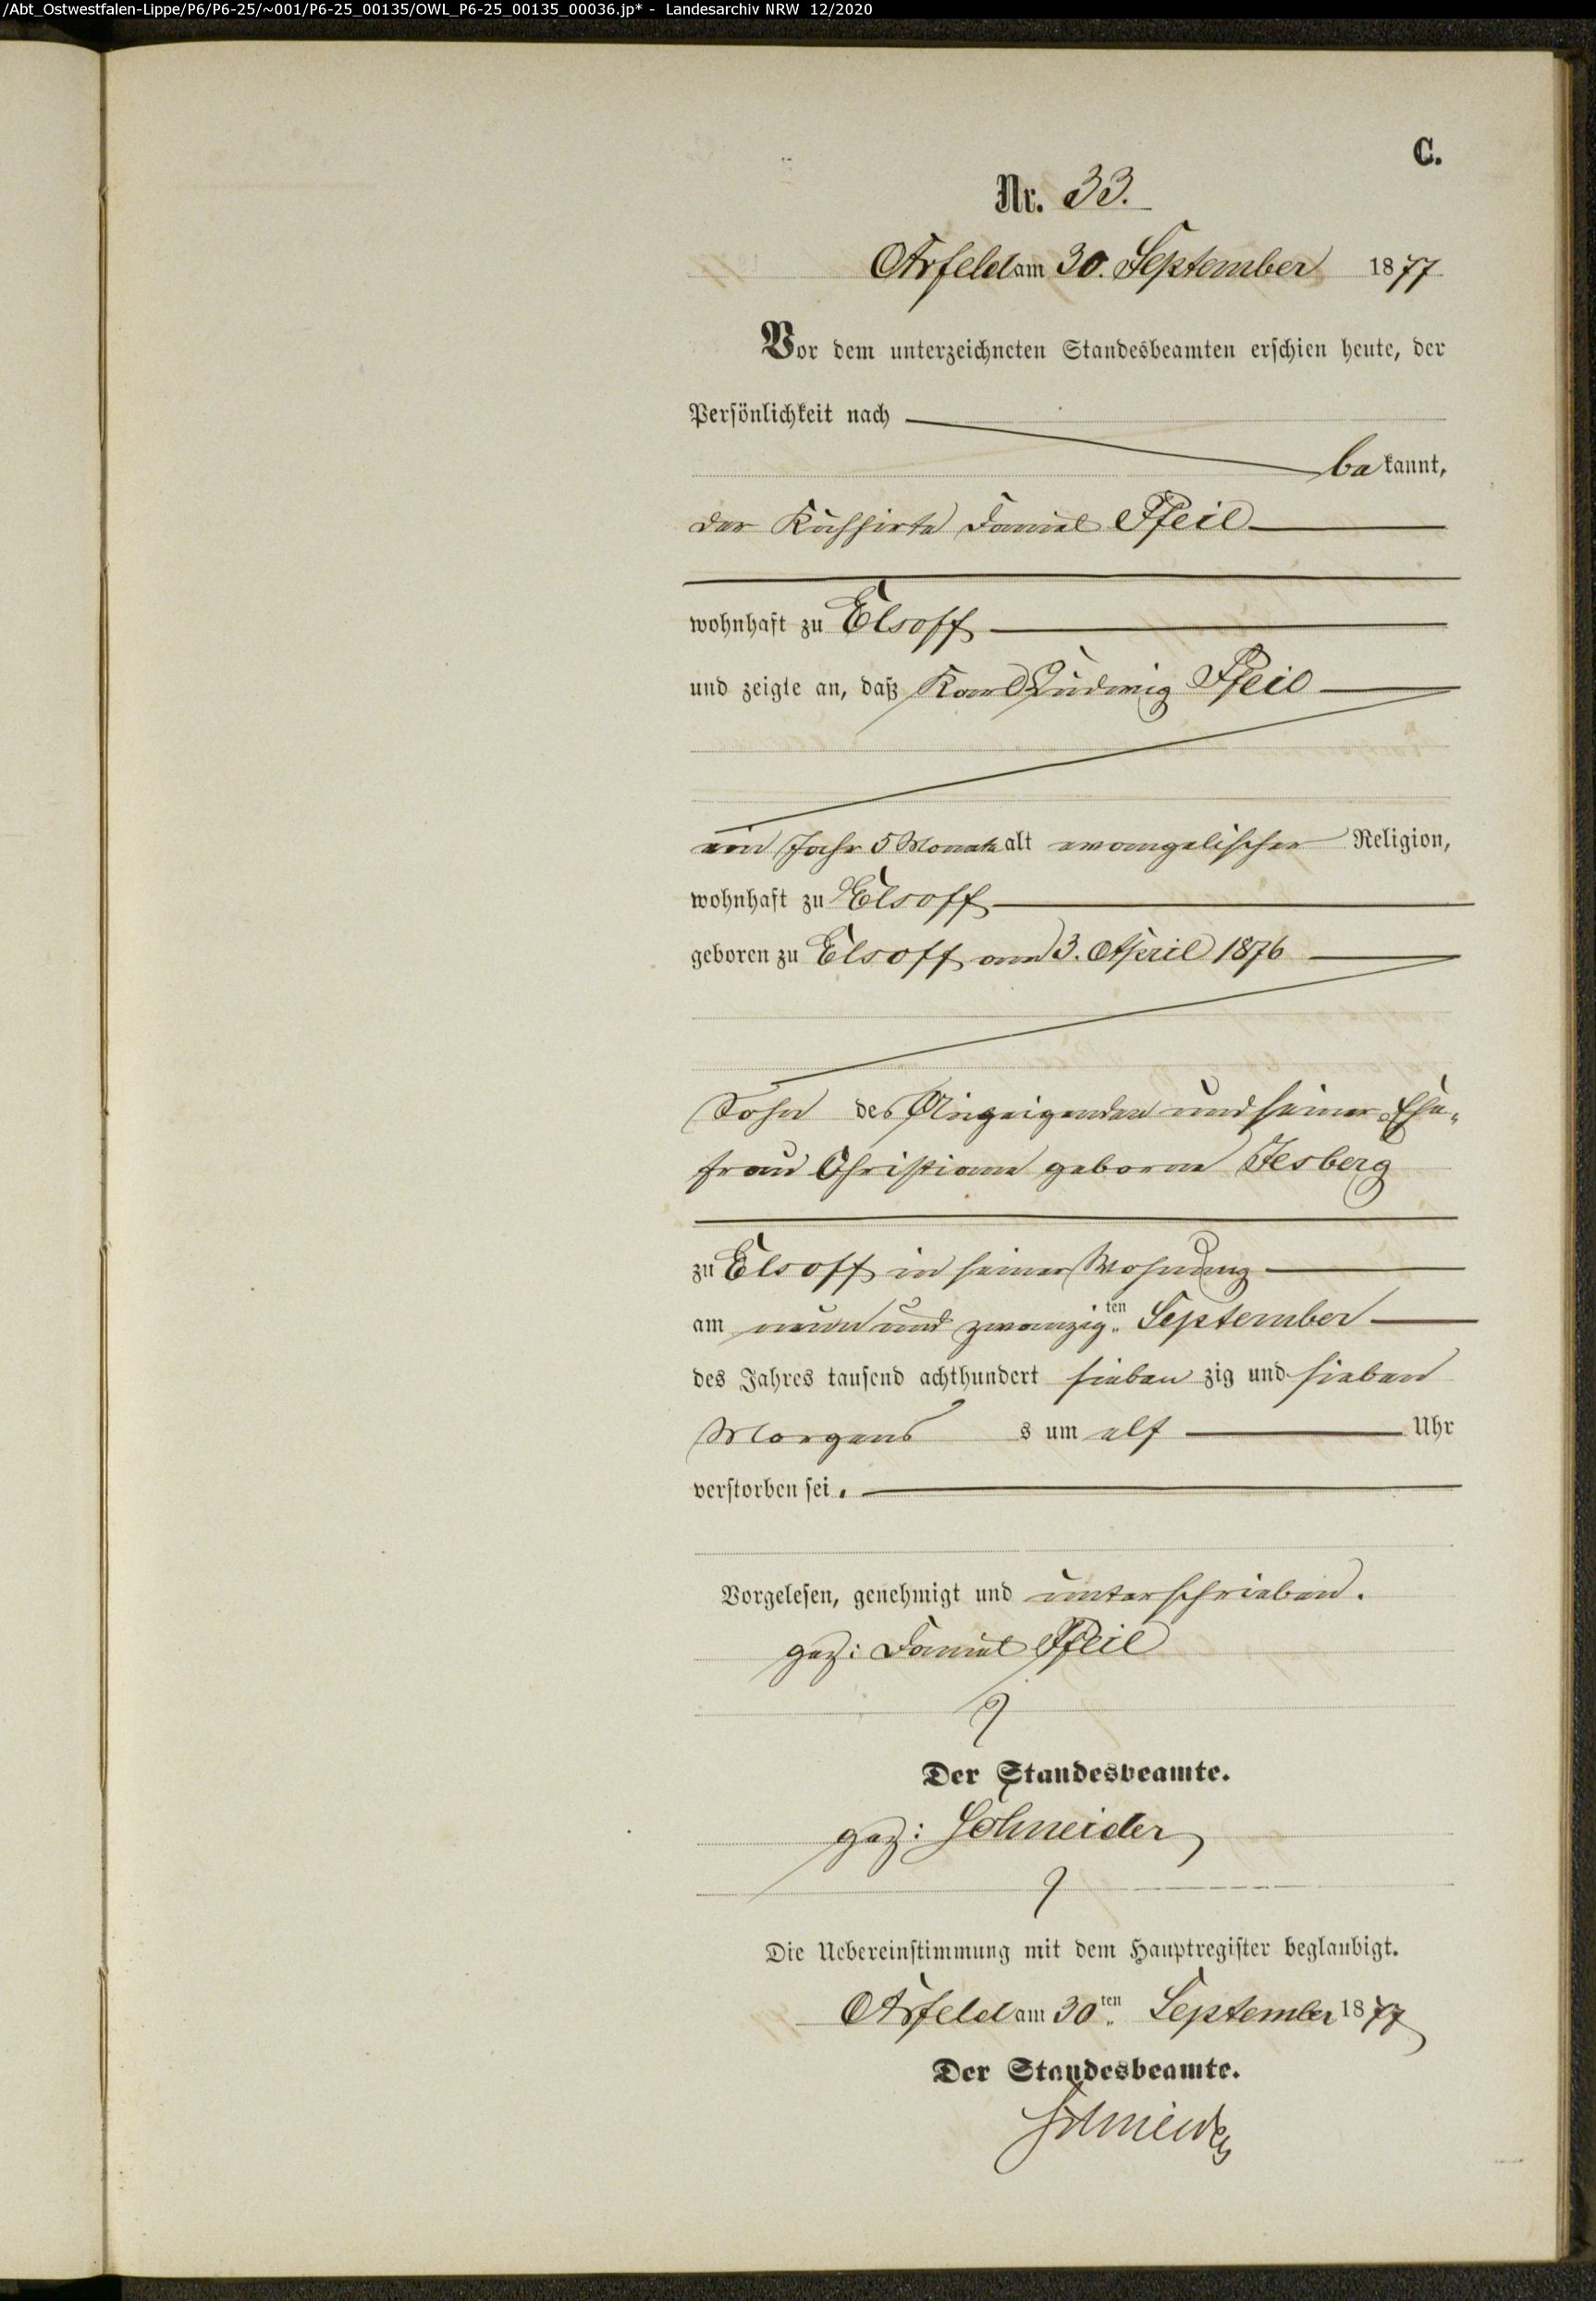 /Abt_Ostwestfalen-Lippe/P6/P6-25/~001/P6-25_00135/OWL_P6-25_00135_00036.jp* - Landesarchiv NRW 12/2020
C.
Nr. 33.
Arfeld am 30. September 1877
Vor dem unterzeichneten Standesbeamten erschien heute, der
Persönlichkeit nach
bekannt,
der Kuhhirte Daniel Pfeil
wohnhaft zu Elsoff
und zeigte an, daß Karl Ludwig Pfeil
ein Jahr 5 Monate alt evangelischer Religion,
wohnhaft zu Elsoff
geboren zu Elsoff am 3. April 1876
Sohn des Anzeigenden und seiner Ehe-
frau Christiane geborne Jesberg
zu Elsoff in seiner Wohnung
am neun und zwanzigten September
des Jahres tausend achthundert sieben zig und sieben
Morgens s um elf Uhr
verstorben sei.
Vorgelesen, genehmigt und unterschrieben.
gez: Daniel Pfeil
Der Standesbeamte.
gez: Schneider
Die Uebereinstimmung mit dem Hauptregister beglaubigt.
Arfeld am 30ten September 1877
Der Standesbeamte.
Schneider